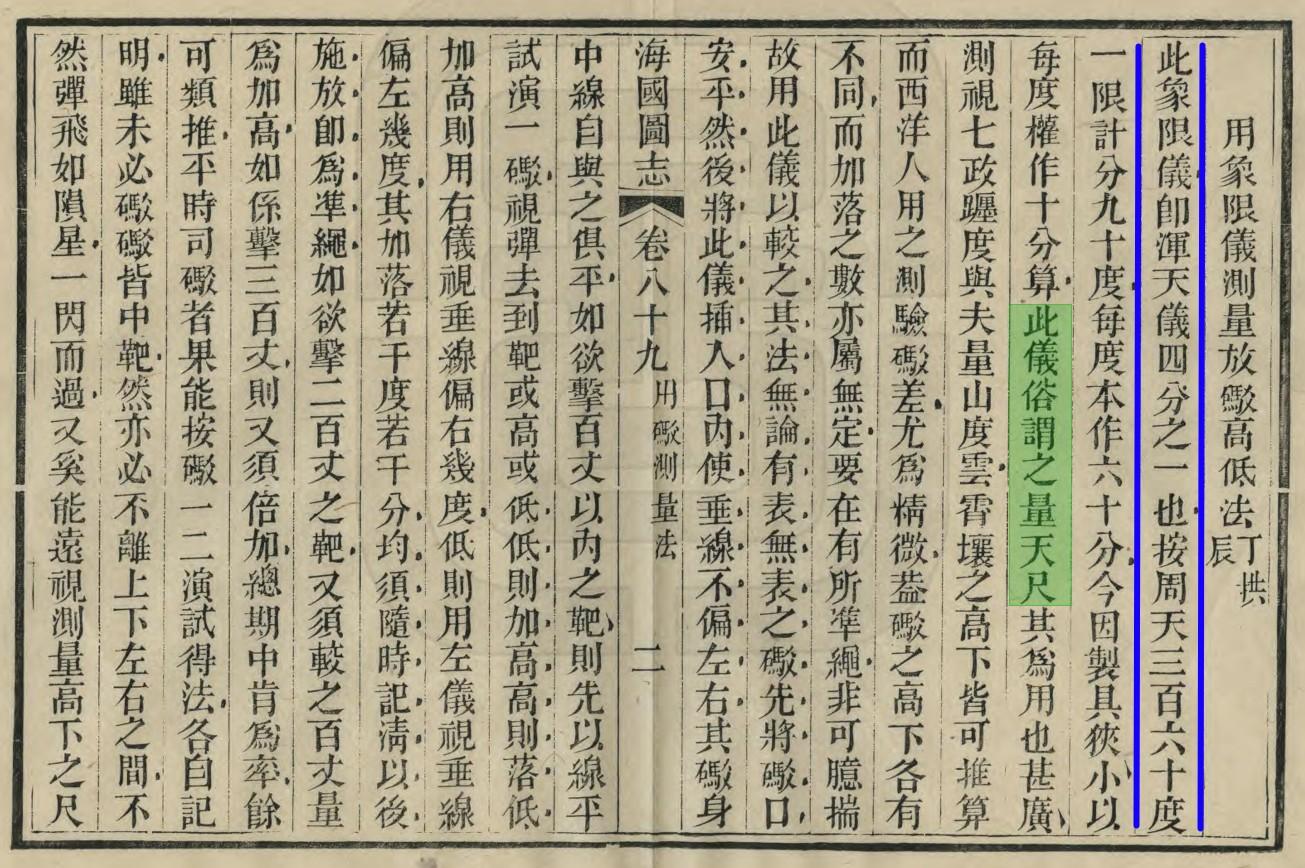 用象限儀測量放礮高低法丁拱辰
此象限儀卽渾天儀四分之一也按周天三百六十度
一限計分九十度每度本作六十分今因製具狹小以
每度權作十分算此儀俗謂之量天尺其爲用也甚廣
測視七政躔度與夫量山度雲霄壤之高下皆可推算
而西洋人用之測驗礮差尤爲精微葢礮之高下各有
不同而加落之數亦屬無定要在有所準繩非可臆揣
故用此儀以較之其法無論有表無表之礮先將礮口
安平然後將此儀插入口內使垂線不偏左右其礮身
海國圖志 卷八十九 用礮測量法 二
中線自與之俱平如欲擊百丈以內之靶則先以線平
試演一礮視彈去到靶或高或低低則加高高則落低
加高則用右儀視垂線偏右幾度低則用左儀視垂線
偏左幾度其加落若干度若干分均須隨時記淸以後
施放卽爲準繩如欲擊二百丈之靶又須較之百丈量
爲加高如係擊三百丈則又須倍加總期中肯爲率餘
可類推平時司礮者果能按礮一二演試得法各自記
明雖未必礮礮皆中靶然亦必不離上下左右之間不
然彈飛如隕星一閃而過又奚能遠視測量高下之尺